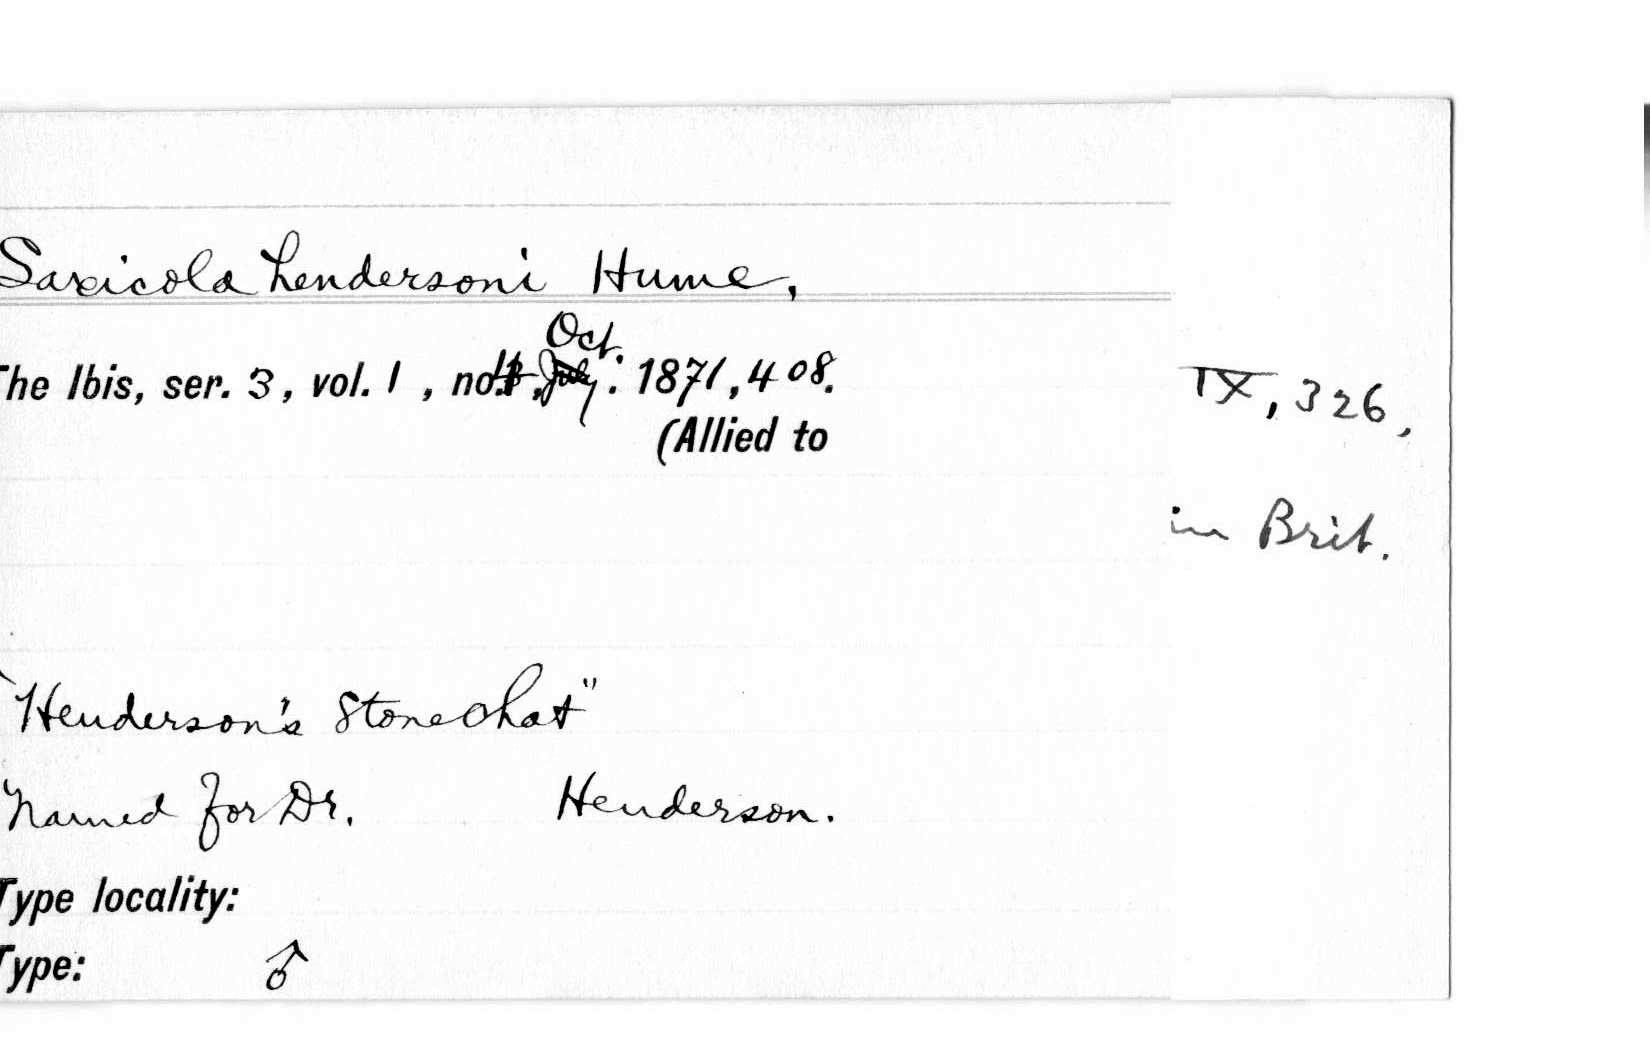 Saxicola hendersoni Hume,
Oct.
The Ibis, ser. 3, vol. 1, no. 4, July. 1871, 408.
(Allied to
IX, 326,
in Brit.
"Henderson's Stonechat"
Named for Dr. Henderson.
Type locality:
Type: ♂